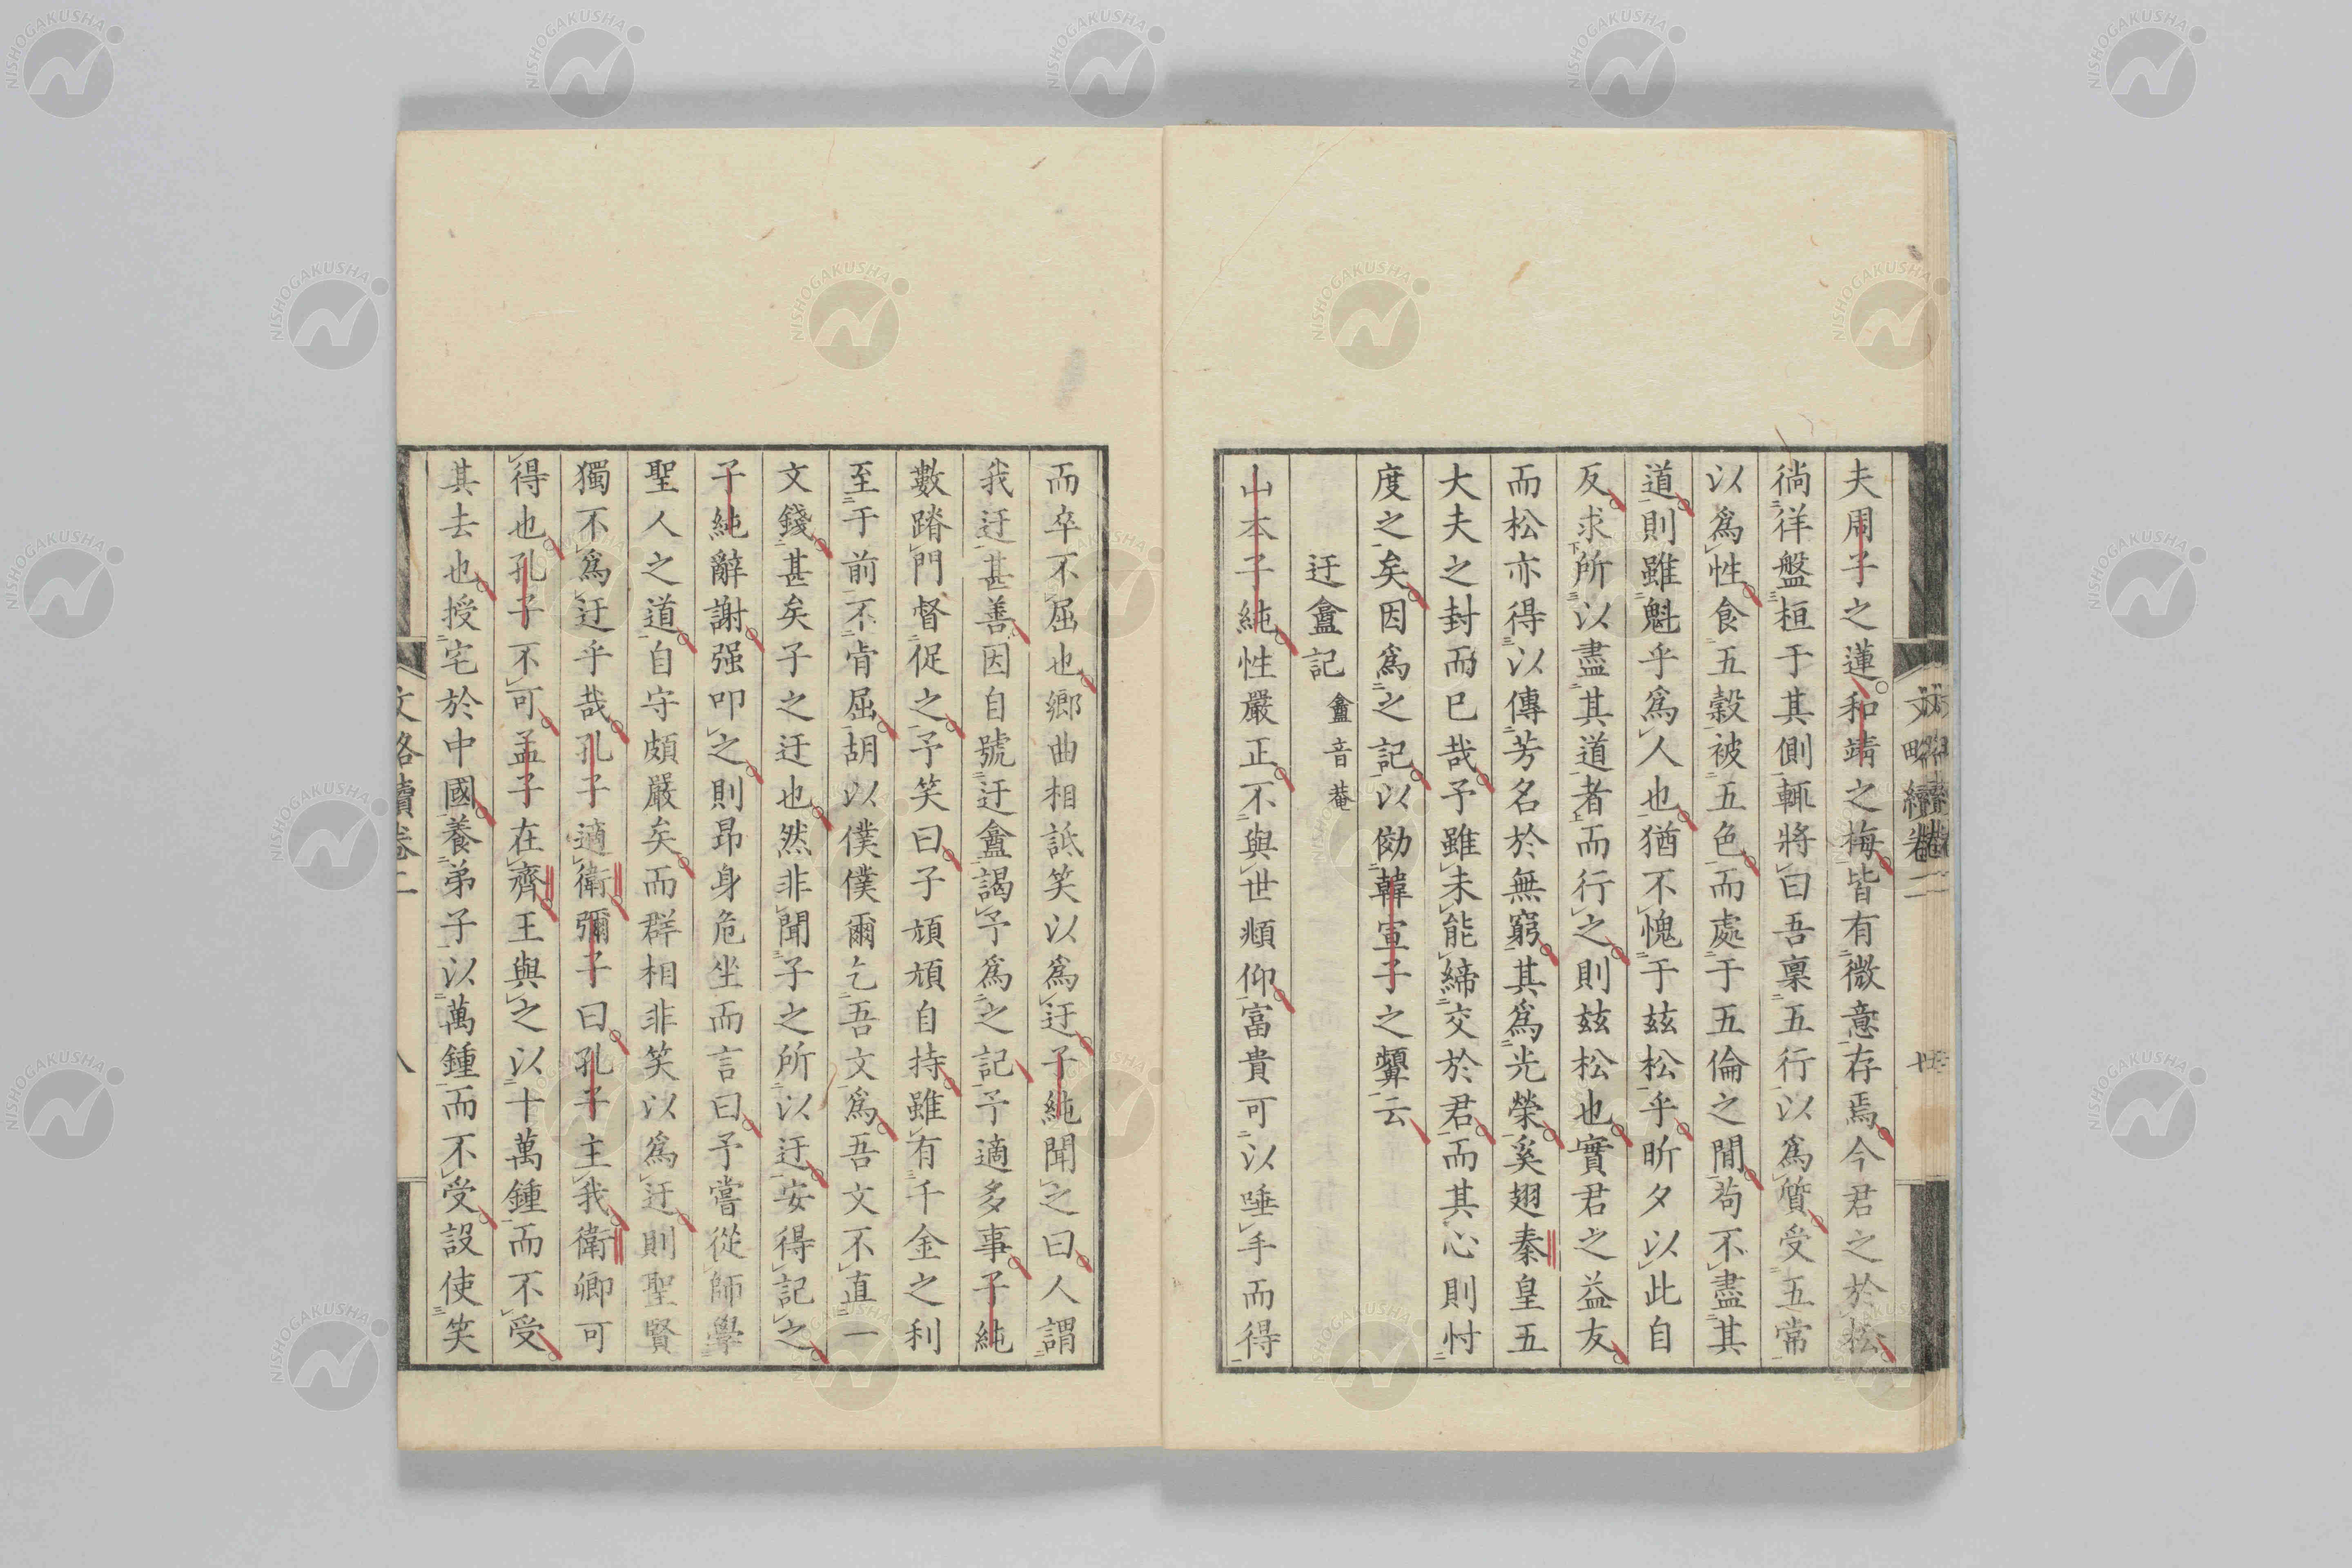 夫周子之蓮和靖之梅皆有微意存焉今君之於松
徜徉盤桓于其側輒將曰吾稟五行以爲質受五常
以爲性食五穀被五色而處于五倫之間苟不盡其
道則雖魁乎爲人也猶不愧于玆松乎昕夕以此自
反求所以盡其道者而行之則玆松也實君之益友
而松亦得以傳芳名於無窮其爲光榮奚翅秦皇五
大夫之封而已哉予雖未能締交於君而其心則忖
度之矣因爲之記以傚韓宣子之顰云
迂盦記 盦音菴
山本子純性嚴正不與世頫仰富貴可以唾手而得
而卒不屈也鄉曲相詆笑以爲迂子純聞之曰人謂
我迂甚善因自號迂盦謁予爲之記予適多事子純
數踏門督促之予笑曰子頑頑自持雖有千金之利
至于前不肯屈胡以僕僕爾乞吾文爲吾文不直一
文錢甚矣子之迂也然非聞子之所以迂安得記之
子純辭謝强叩之則昂身危坐而言曰予嘗從師學
聖人之道自守頗嚴矣而群相非笑以爲迂則聖賢
獨不爲迂乎哉孔子適衛彌子曰孔子主我衛卿可
得也孔子不可孟子在齊王與之以十萬鍾而不受
其去也授宅於中國養弟子以萬鍾而不受設使笑
文略續卷二
八
NISHOGAKUSHA